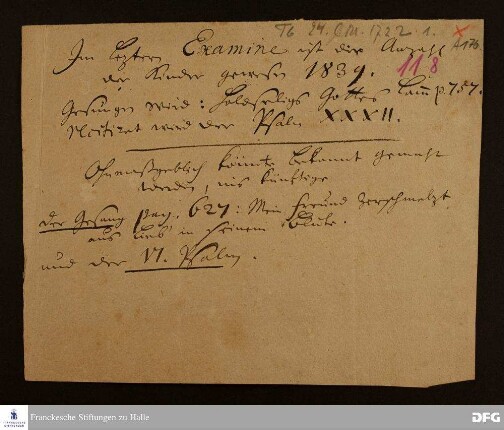 T6 24. CM. 1722. 1.
Im letztern Examine ist die Anzahl
A 176
der Kinder gewesen 1839.
118
Gesungen wird: Holdseeligs Gottes Lam̃ p. 757.
Recitiret wird der Psalm XXXII.
Ohnmaßgeblich könnte bekannt gemacht
werden, aufs künftige
der Gesang pag. 627: Mein Freund zerschmelzt
aus Lieb in seinem Blute.
und der VI. Psalm.
Franckesche Stiftungen zu Halle
DFG